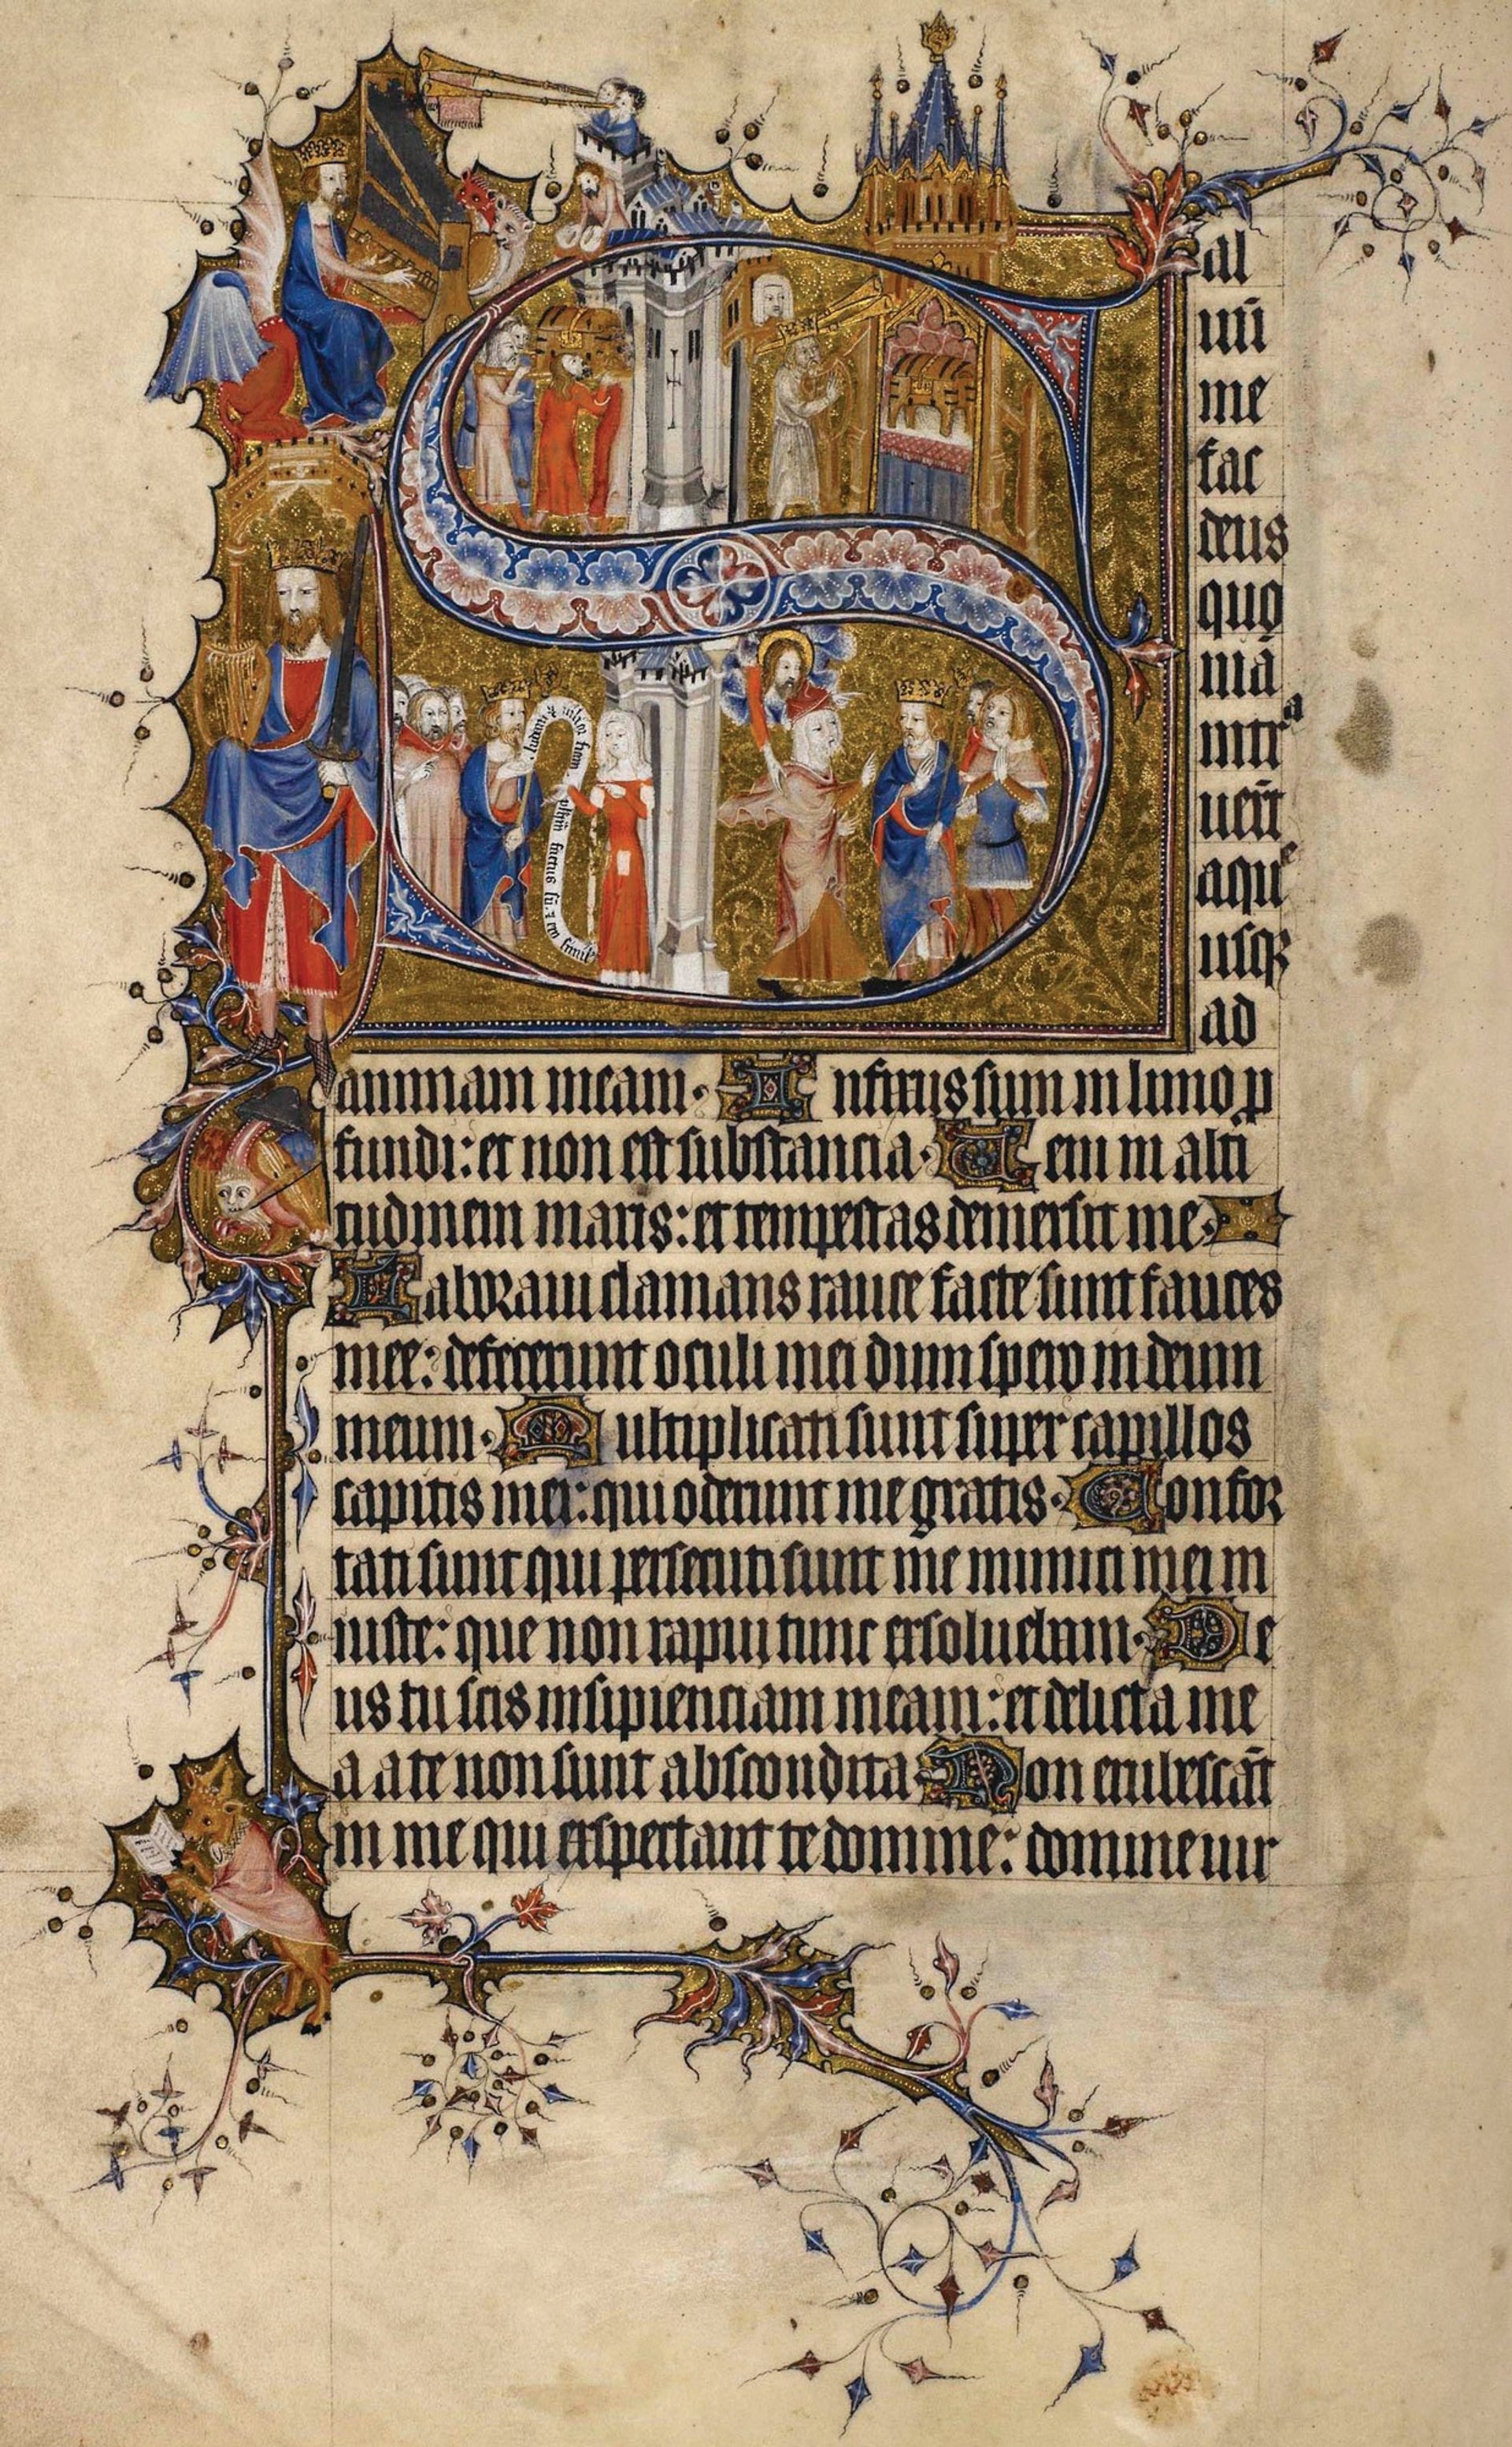 Sal
uū
me
fac
deus
quo
niā
intrᵃ
uer̄t
aquᵉ
usqꝫ
ad
animam meam. Infixus sum in limo ꝓ
fundi: et non est substancia. Veni in alti
tudinem maris: et tempestas demersit me.
Laboraui clamans rauce facte sunt fauces
mee: defecerunt oculi mei dum spero in deum
meum. Multiplicati sunt super capillos
capitis mei: qui oderunt me gratis. Confor
tati sunt qui persecuti sunt me inimici mei in
iuste: que non rapui tunc exsoluebam. De
us tu scis insipienciam meam: et delicta me
a a te non sunt abscondita. Non erubescāt
in me qui exspectant te domine: domine uir
ludam & uilior fiam plusqm̄ factus sū · & ero humil'